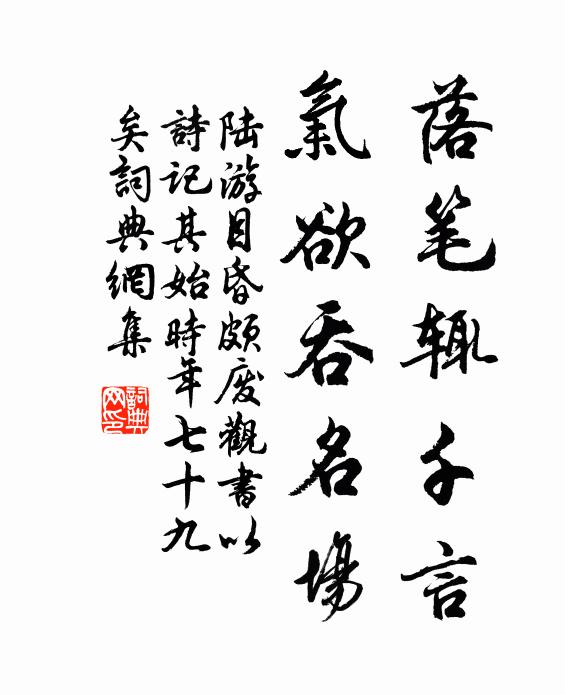 落笔辄千言
氣欲吞名場
陆游目昏頗废觀書以
詩記其始時年七十九
矣詞典網集
詞典
网印